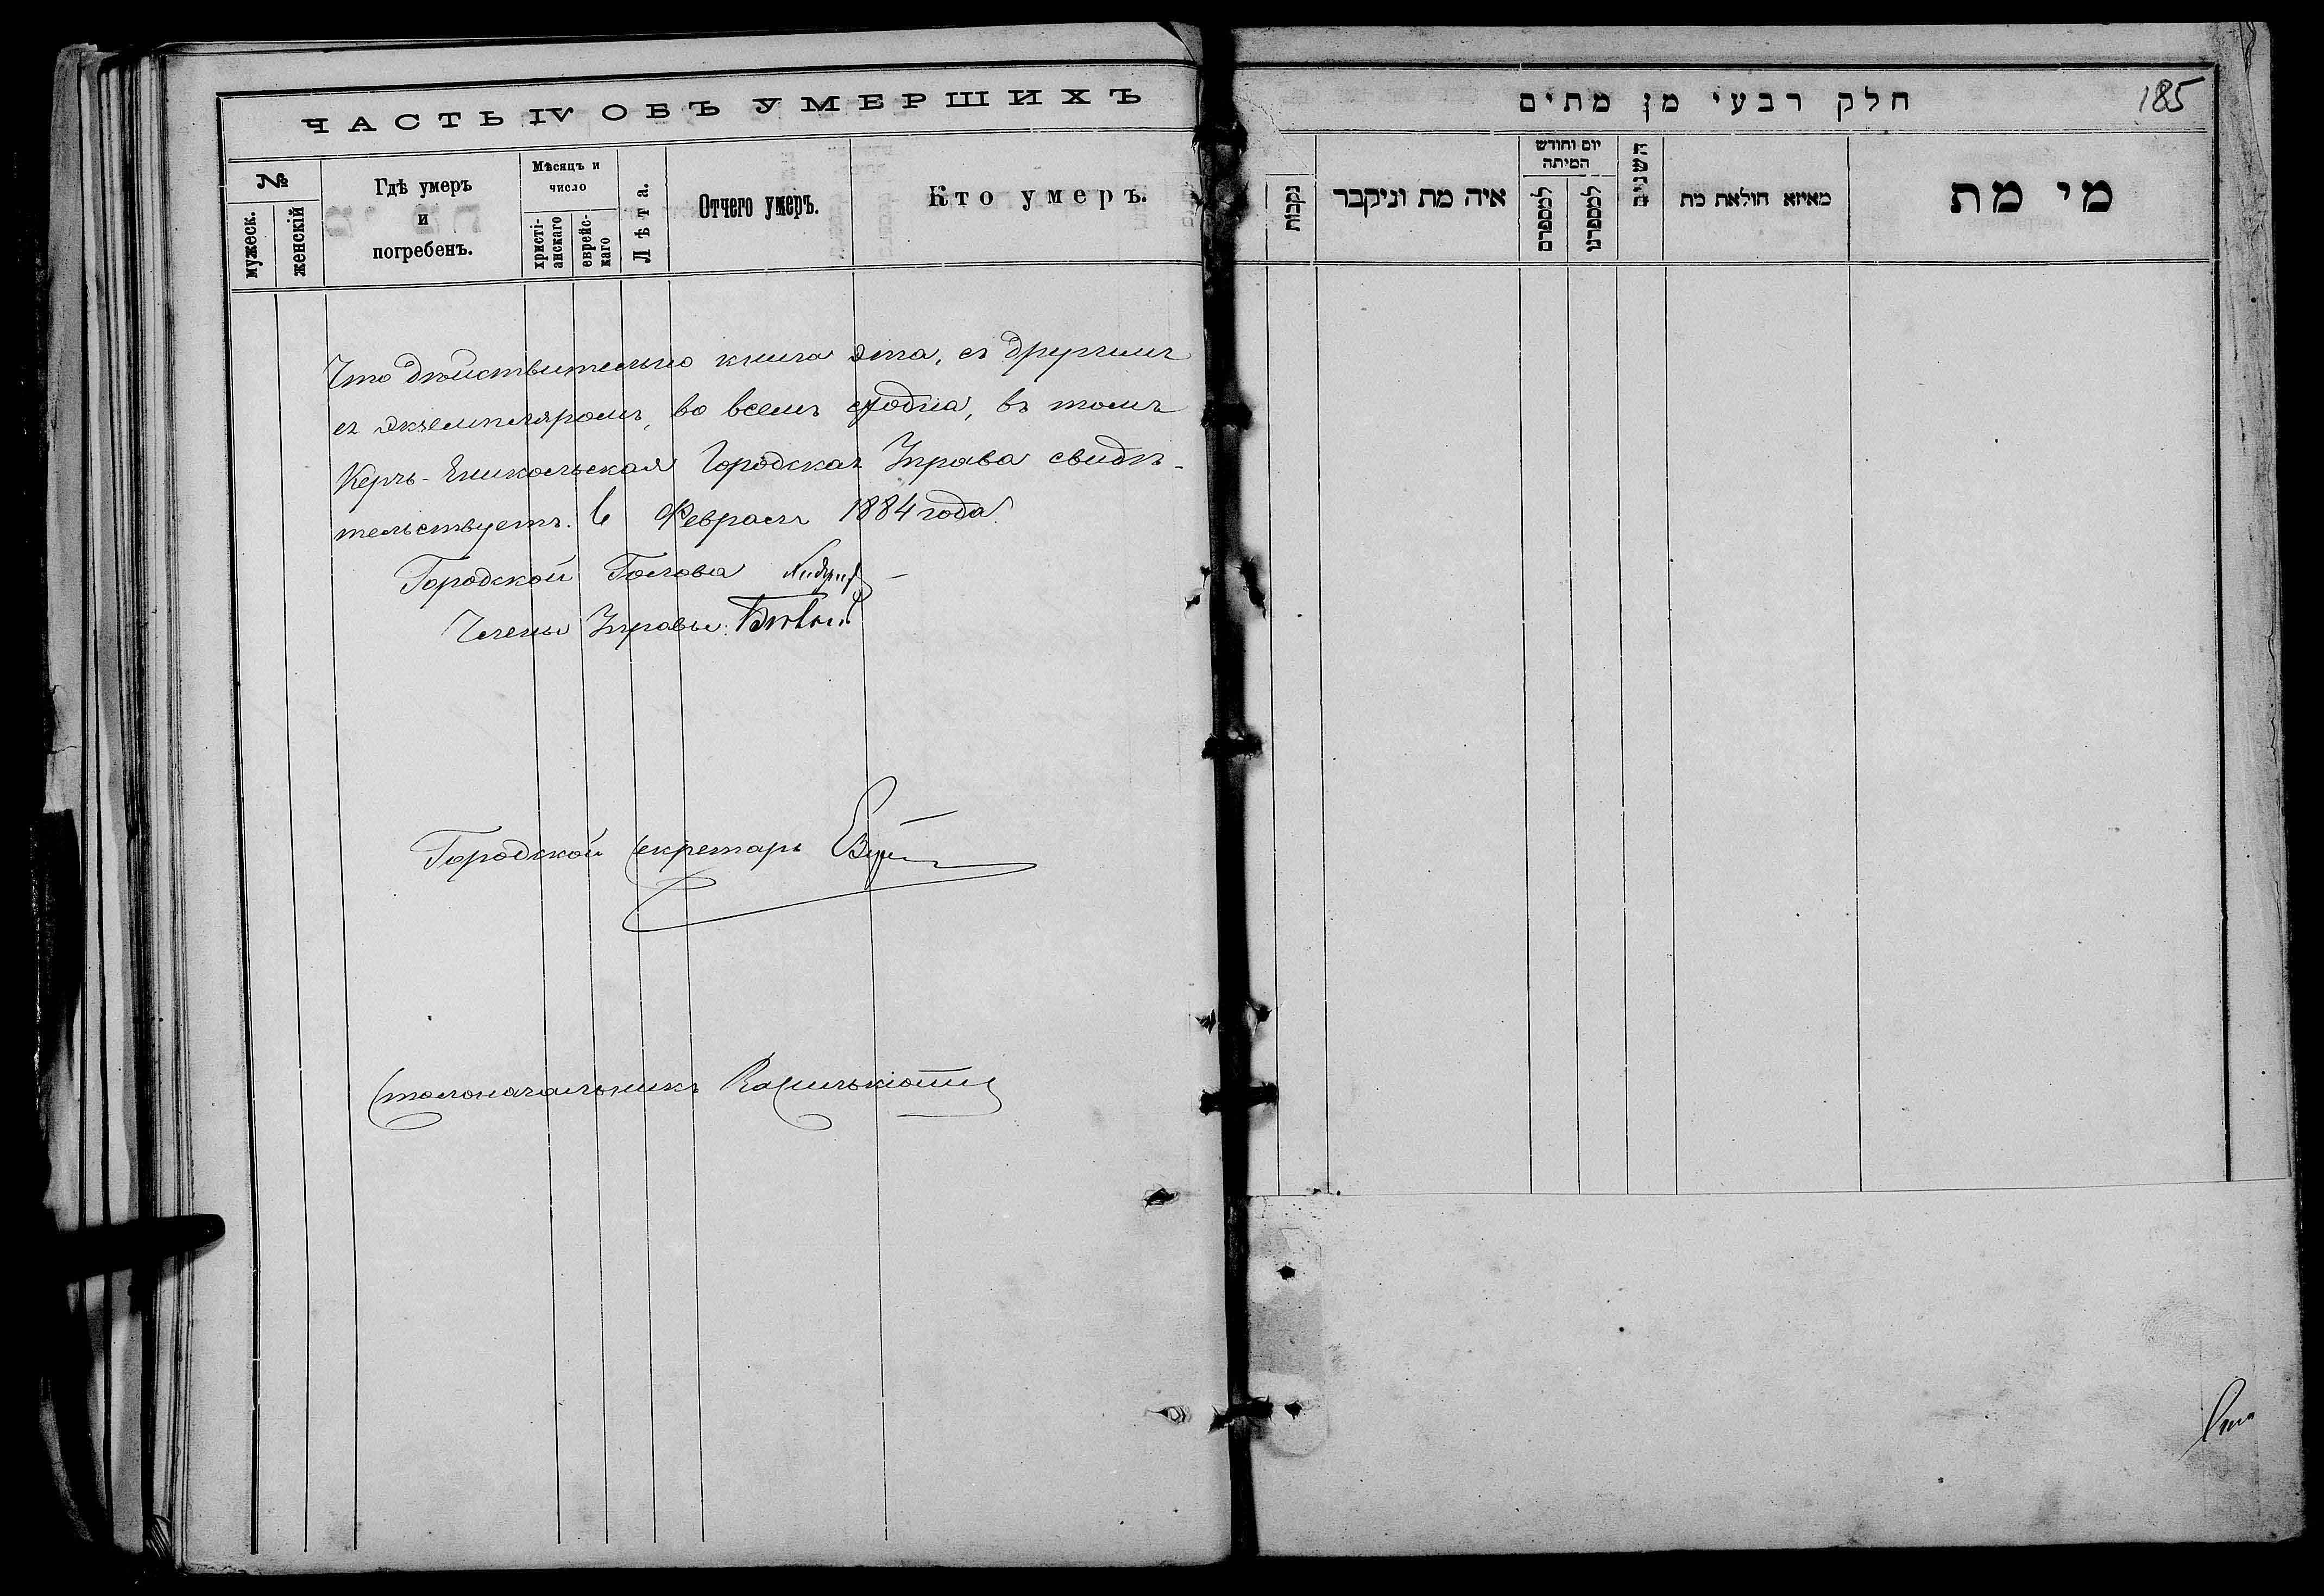 ЧАСТЬ IV ОБЪ УМЕРШИХЪ
№
мужеск.
женскій
Гдѣ умеръ
и
погребенъ.
Мѣсяцъ и
число
христі-
анскаго
еврейс-
каго
Лѣта.
Отчего умеръ.
Кто умеръ.
Что дѣйствительно книга эта, съ другимъ
ея экземпляромъ, во всемъ сходна, въ томъ
Керчь-Еникольская Городская Управа свидѣ-
тельствуетъ. 6 Февраля 1884 года.
Городской Голова
Члены Управы:
Городской Секретарь
Столоначальникъ
חלק רבעי מן מתים
185
נקבות
איה מת וניקבר
יום וחודש
המיתה
למספרם
למספרנו
השנים
מאיזא חולאת מת
מי מת